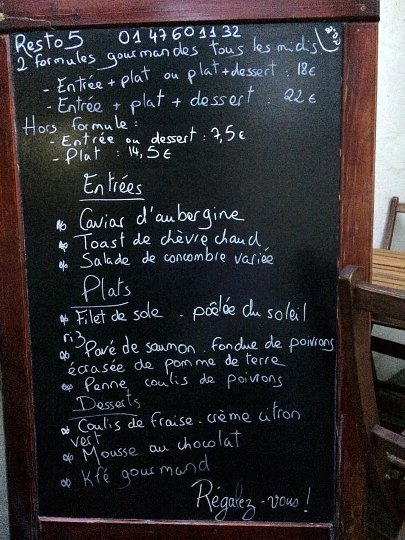 Resto 5 01 47 60 11 32
2 formules gourmandes tous les midis
- Entrée + plat ou plat + dessert : 18€
- Entrée + plat + dessert : 22€
Hors formule :
- Entrée ou dessert : 7,5€
- Plat : 14,5€
Entrées
Caviar d'aubergine
Toast de chèvre chaud
Salade de concombre variée
Plats
Filet de sole . poêlée du soleil
riz
Pavé de saumon . fondue de poivrons
écrasée de pomme de terre
Penne coulis de poivrons
Desserts
Coulis de fraise . crème citron
vert
Mousse au chocolat
Kfé gourmand
Régalez-vous !